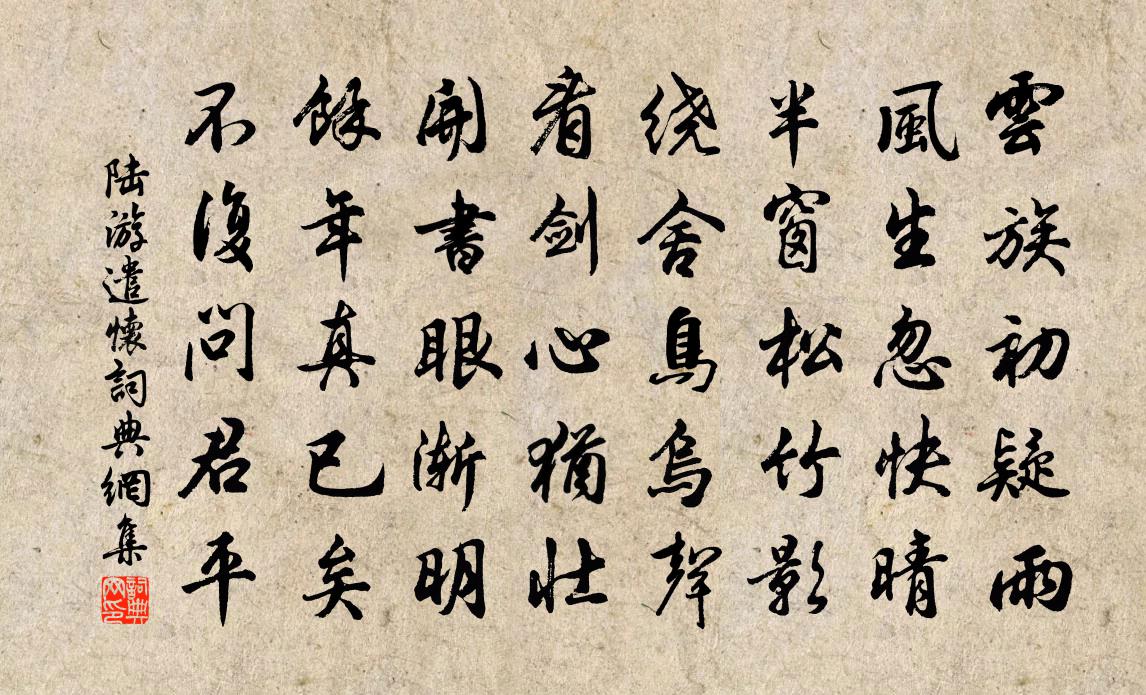 雲族初疑雨
風生忽快晴
半窗松竹影
绕舍鳥烏聲
看剑心猶壮
開書眼渐明
餘年真已矣
不復問君平
陆游遣懷詞典網集
詞典网印